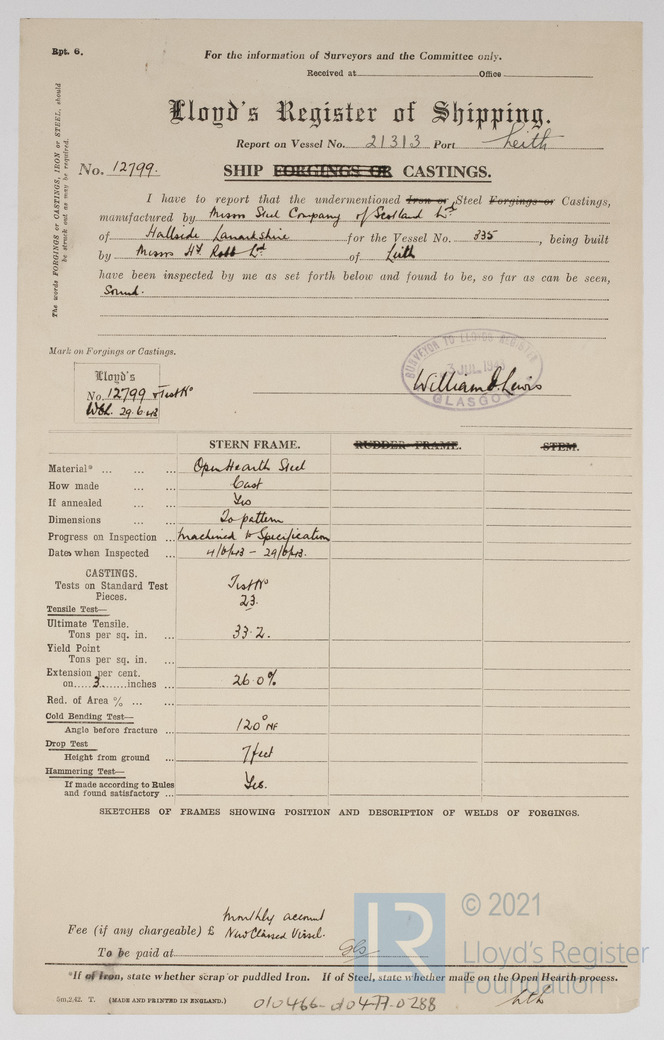 Rpt. 6.
For the information of Surveyors and the Committee only.
Received at Office
The words FORGINGS or CASTINGS, IRON or STEEL, should be struck out as may be required.
Lloyd's Register of Shipping.
Report on Vessel No. 21313 Port Leith
No. 12799. SHIP FORGINGS OR CASTINGS.
I have to report that the undermentioned Iron or Steel Forgings or Castings,
manufactured by Messrs Steel Company of Scotland Ltd
of Hallside Lanarkshire for the Vessel No. 335, being built
by Messrs Hy Robb Ltd of Leith
have been inspected by me as set forth below and found to be, so far as can be seen,
Sound.
Mark on Forgings or Castings.
SURVEYOR TO LLOYDS REGISTER
3 JUL 1943
GLASGOW
William J. Lewis
Lloyd's
No. 12799 & Test No
WJL. 29.6.43
STERN FRAME. RUDDER FRAME. STEM.
Material* ... ... ... Open Hearth Steel
How made ... ... Cast
If annealed ... ... Yes
Dimensions ... ... To pattern
Progress on Inspection ... Machined to Specification
Dates when Inspected ... 4/6/43 - 29/6/43.
CASTINGS.
Tests on Standard Test Pieces. Test No 23.
Tensile Test—
Ultimate Tensile.
Tons per sq. in. ... 33.2.
Yield Point
Tons per sq. in. ...
Extension per cent.
on.....3.......inches ... 26.0%
Red. of Area % ... ...
Cold Bending Test—
Angle before fracture ... 120° NF
Drop Test
Height from ground ... 7 feet
Hammering Test—
If made according to Rules
and found satisfactory ... Yes.
SKETCHES OF FRAMES SHOWING POSITION AND DESCRIPTION OF WELDS OF FORGINGS.
Monthly account
Fee (if any chargeable) £ New Classed Vessel.
To be paid at Gls
*If of Iron, state whether scrap or puddled Iron. If of Steel, state whether made on the Open Hearth process.
5m,2.42. T. (MADE AND PRINTED IN ENGLAND.)
010466-010477-0288
LR
© 2021
Lloyd's Register
Foundation